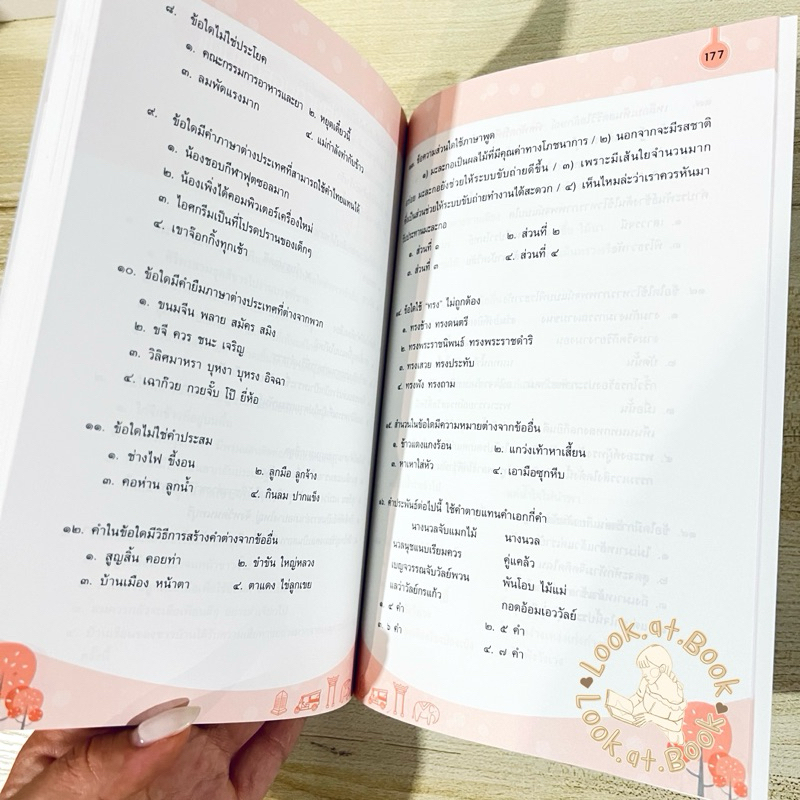 ๘. ข้อใดไม่ใช่ประโยค
๑. คณะกรรมการอาหารและยา ๒. หยุดเดี๋ยวนี้
๓. ลมพัดแรงมาก ๔. แม่กำลังทำกับข้าว
๙. ข้อใดมีคำภาษาต่างประเทศที่สามารถใช้คำไทยแทนได้
๑. น้องชอบกีฬาฟุตซอลมาก
๒. น้องเพิ่งได้คอมพิวเตอร์เครื่องใหม่
๓. ไอศกรีมเป็นที่โปรดปรานของเด็กๆ
๔. เขาจ๊อกกิ้งทุกเช้า
๑๐. ข้อใดมีคำยืมภาษาต่างประเทศที่ต่างจากพวก
๑. ขนมจีน พลาย สมัคร สมิง
๒. ขจี ควร ชนะ เจริญ
๓. วิลิศมาหรา บุหงา บุหรง อิจฉา
๔. เฉาก๊วย กวยจั๊บ โป๊ ยี่ห้อ
๑๑. ข้อใดไม่ใช่คำประสม
๑. ช่างไฟ ขี้งอน ๒. ลูกมือ ลูกจ้าง
๓. คอห่าน ลูกน้ำ ๔. กินลม ปากแข็ง
๑๒. คำในข้อใดมีวิธีการสร้างคำต่างจากข้ออื่น
๑. สูญสิ้น คอยท่า ๒. ขำขัน ใหญ่หลวง
๓. บ้านเมือง หน้าตา ๔. ตาแดง ไข่ลูกเขย
177
ข้อความส่วนใดใช้ภาษาพูด
๑) มะละกอเป็นผลไม้ที่มีคุณค่าทางโภชนาการ / ๒) นอกจากจะมีรสชาติ
มะละกอยังช่วยให้ระบบขับถ่ายดีขึ้น / ๓) เพราะมีเส้นใยจำนวนมาก
เป็นส่วนช่วยให้ระบบขับถ่ายทำงานได้สะดวก / ๔) เห็นไหมล่ะว่าเราควรหันมา
รับประทานมะละกอ
๑. ส่วนที่ ๑ ๒. ส่วนที่ ๒
๓. ส่วนที่ ๓ ๔. ส่วนที่ ๔
ข้อใดใช้ "ทรง" ไม่ถูกต้อง
๑. ทรงช้าง ทรงดนตรี
๒. ทรงพระราชนิพนธ์ ทรงพระราชดำริ
๓. ทรงเสวย ทรงประทับ
๔. ทรงฟัง ทรงถาม
สำนวนในข้อใดมีความหมายต่างจากข้ออื่น
๑. ข้าวแดงแกงร้อน ๒. แกว่งเท้าหาเสี้ยน
๓. หาเหาใส่หัว ๔. เอามือซุกหีบ
คำประพันธ์ต่อไปนี้ ใช้คำตายแทนคำเอกกี่คำ
นางนวลจับแมกไม้ นางนวล
นวลนุชแนบเรียมควร คู่แคล้ว
เบญจวรรณจับวัลย์พวน พันโอบ ไม้แม่
แลว่าวัลย์กรแก้ว กอดอ้อมเอววัลย์
๑. ๔ คำ ๒. ๕ คำ
๓. ๖ คำ ๔. ๗ คำ
Look.at.Book
Look.at.Book